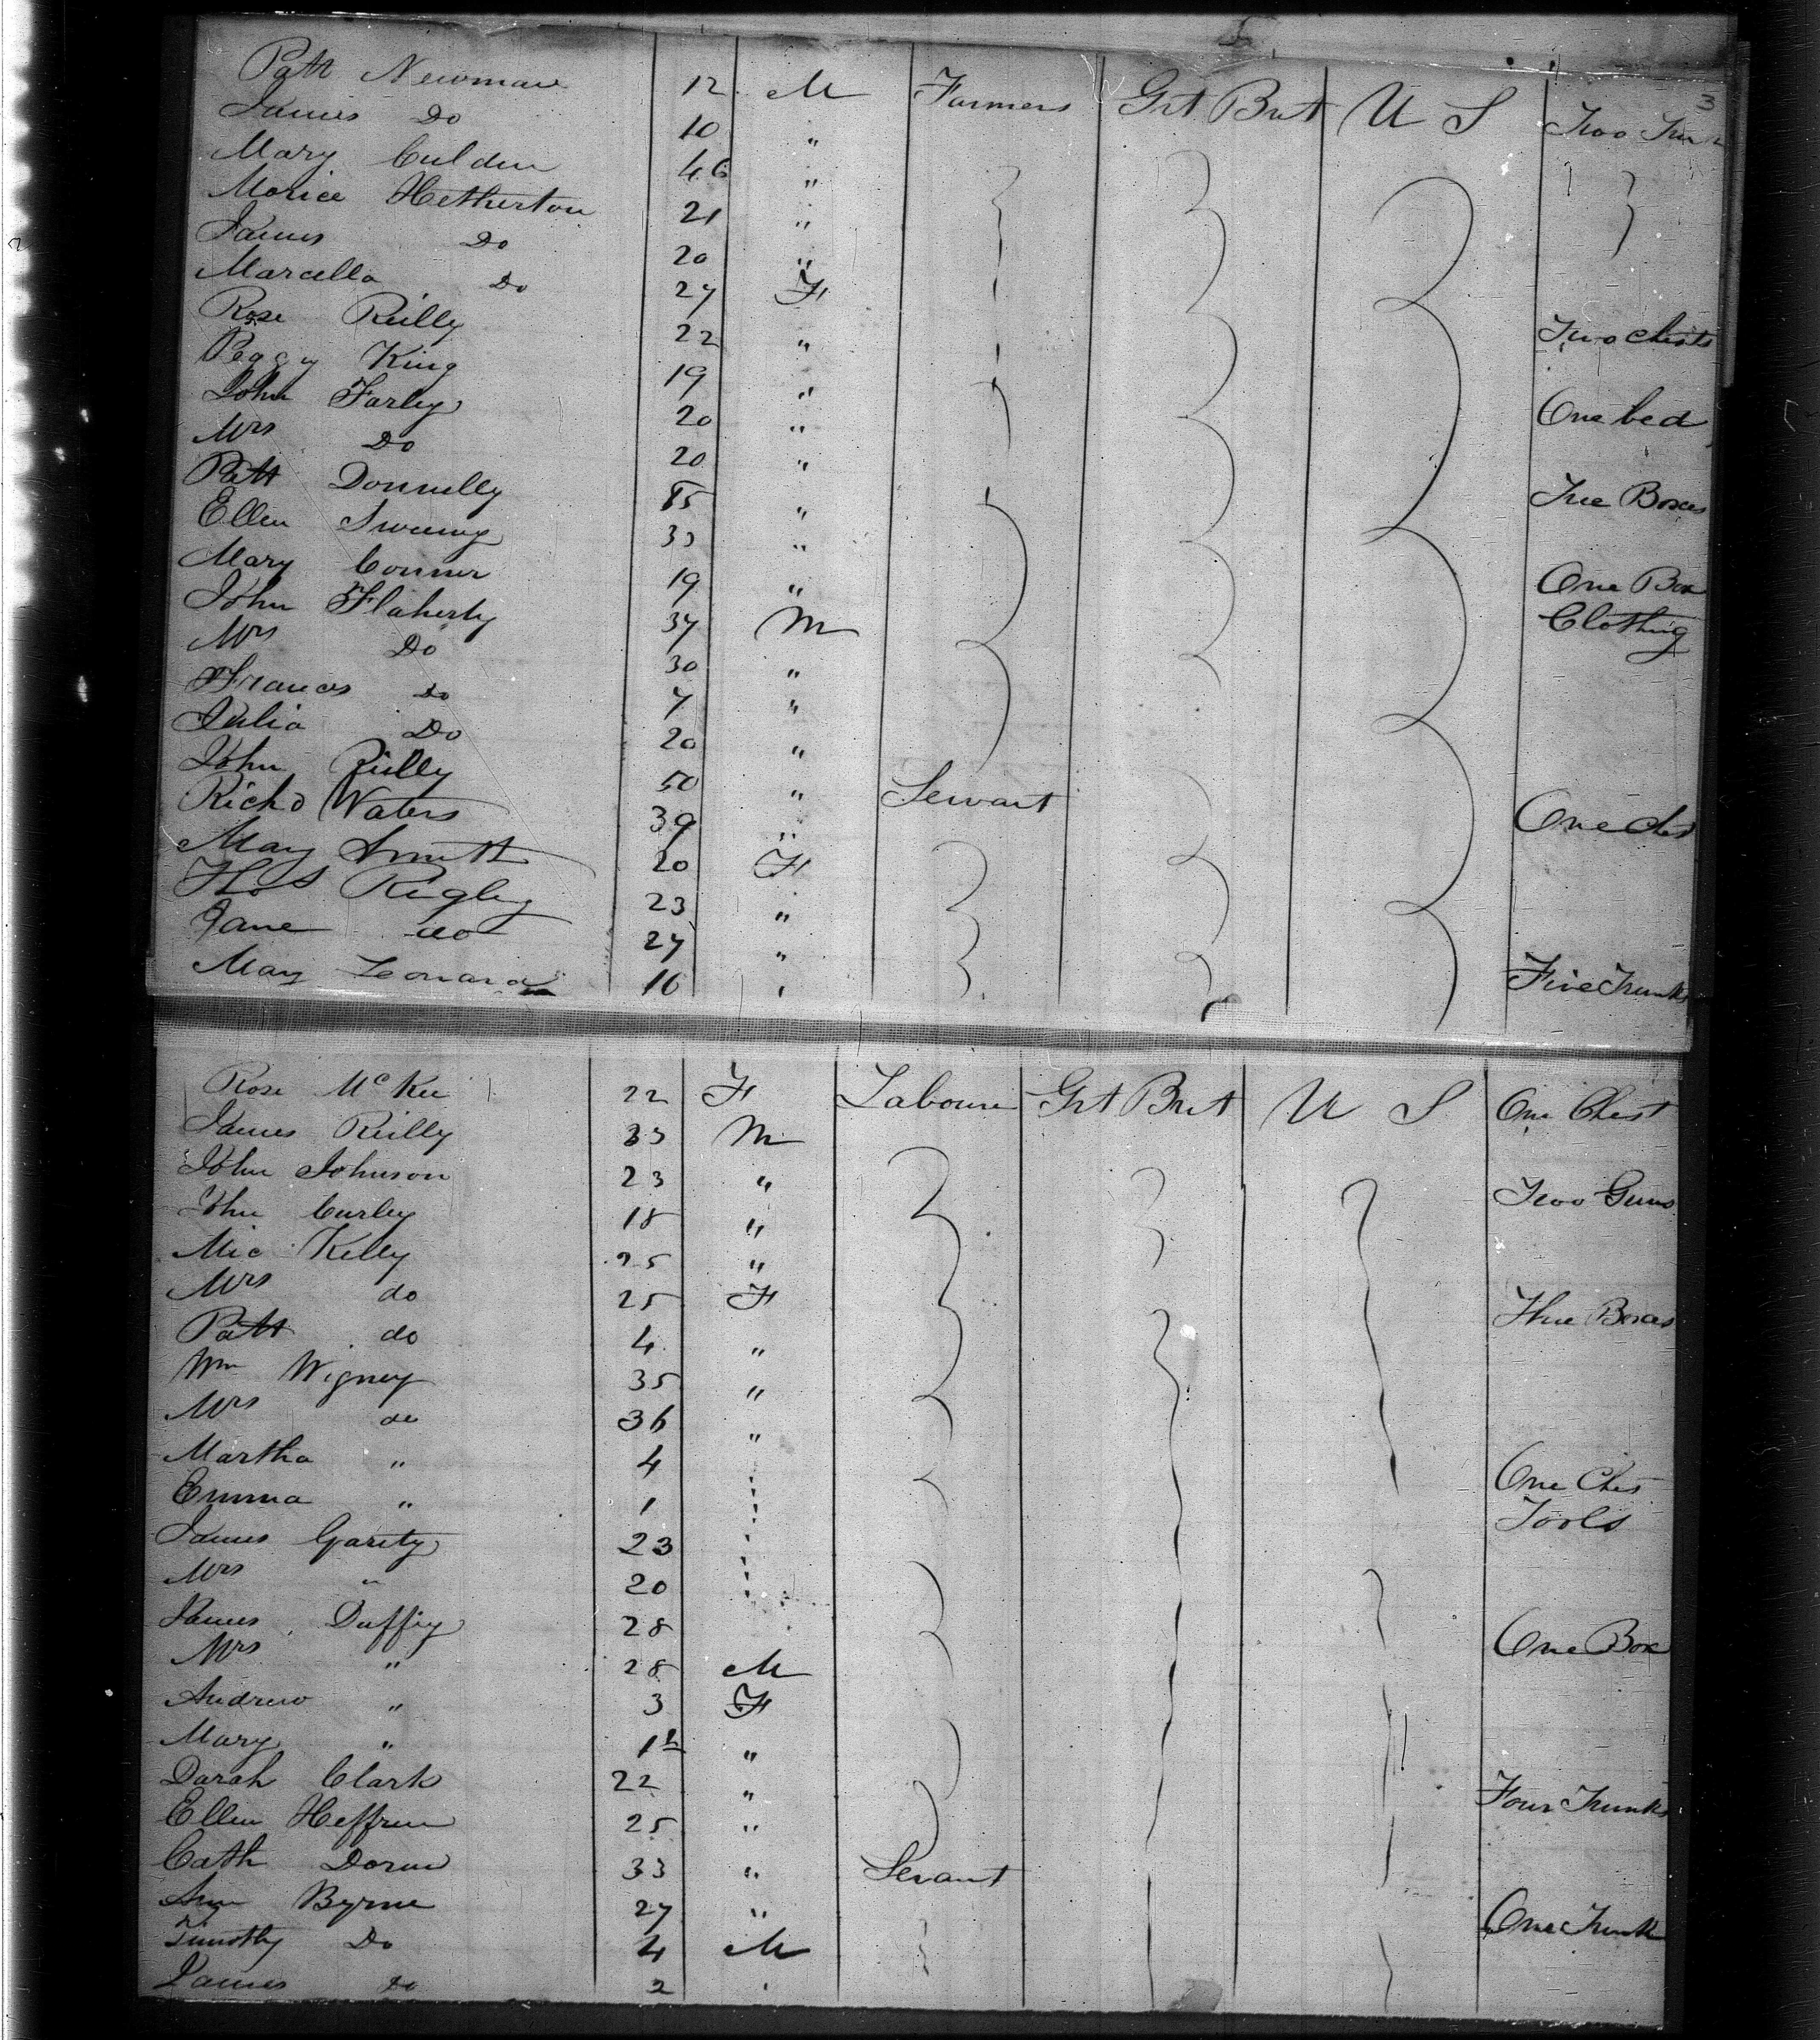 3
Patt Newman 12 M Farmers Grt Brit U S Two
James Do 10 "
Mary Culden 46 "
Morice Hetherton 21 "
James Do 20 "
Marcella Do 27 F
Rose Reilly 22 " Two Chests
Peggy King 19 "
John Farley 20 " One bed
Mrs Do 20 "
Patt Donnelly "
Ellen Sweeny 33 " Boxes
Mary Conner 19 "
John Flaherty 37 M One Box
Mrs Do 30 " Clothing
Frances Do 7 "
Julia Do 20 "
John Reilly 50 " Servant
Richd Waters 39 " One
Mary Smith 20 F
Thos Rigley 23 "
Jane do 27 "
Mary Leonard 16 " Five Trunks
Rose McKee 22 F Laboure Grt Brit U S One Chest
James Reilly 33 M
John Johnson 23 " Two Guns
John Curley 18 "
Mic Kelly 25 "
Mrs do 25 F
Patt do 4 " Three Boxes
Wm Wigney 35 "
Mrs do 36 "
Martha " 4 "
Emma " 1 " One Ches
James Garity 23 " Tools
Mrs " 20 "
James Duffiy 28
Mrs " 28 M One Box
Andrew " 3 F
Mary " "
Darah Clark 22 "
Ellen Heffren 25 " Four Trunks
Cath Doran 33 " Servant
Ann Byrne 27 "
Timothy Do 4 M One Trunk
James Do 2 "